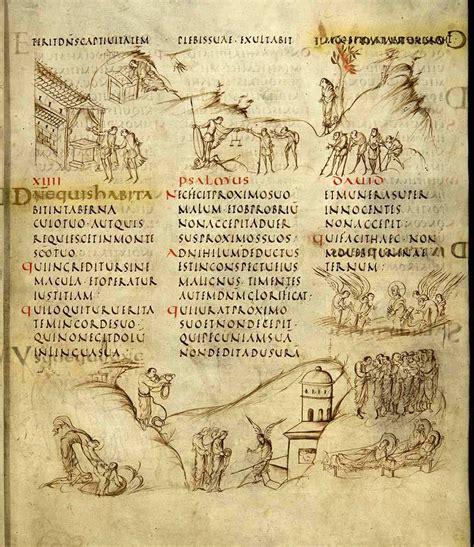 ETERITDNSCAPTIUITATEM PLEBISSUAE·EXULTABIT
XIIII PSALMUS DAUID
DNEQUISHABITA
BITINTABERNA
CULOTUO·AUTQUIS
REQUIESCETINMONTE
SCOTUO
QUIINCREDITURSINE
MACULA·ETOPERATUR
IUSTITIAM:
QUILOQUITURUERITA
TEMINCORDESUO:
QUINONEGITDOLU
INLINGUASUA
NECFECITPROXIMOSUO
MALUM·ETOBPROBRIU
NONACCEPITADUER
SUSPROXIMOSSUOS:
ADNIHILUMDEDUCTUS
ESTINCONSPECTUEIUS
MALIGNUS·TIMENTES
AUTEMDNMGLORIFICAT:
QUIIURATPROXIMO
SUOETNONDECEPIT·
QUIPECUNIAMSUA
NONDEDITADUSURA
ETMUNERASUPER
INNOCENTES
NONACCEPIT·
QUIFACITHAEC·NON
MOUEBITURINAE
TERNUM·